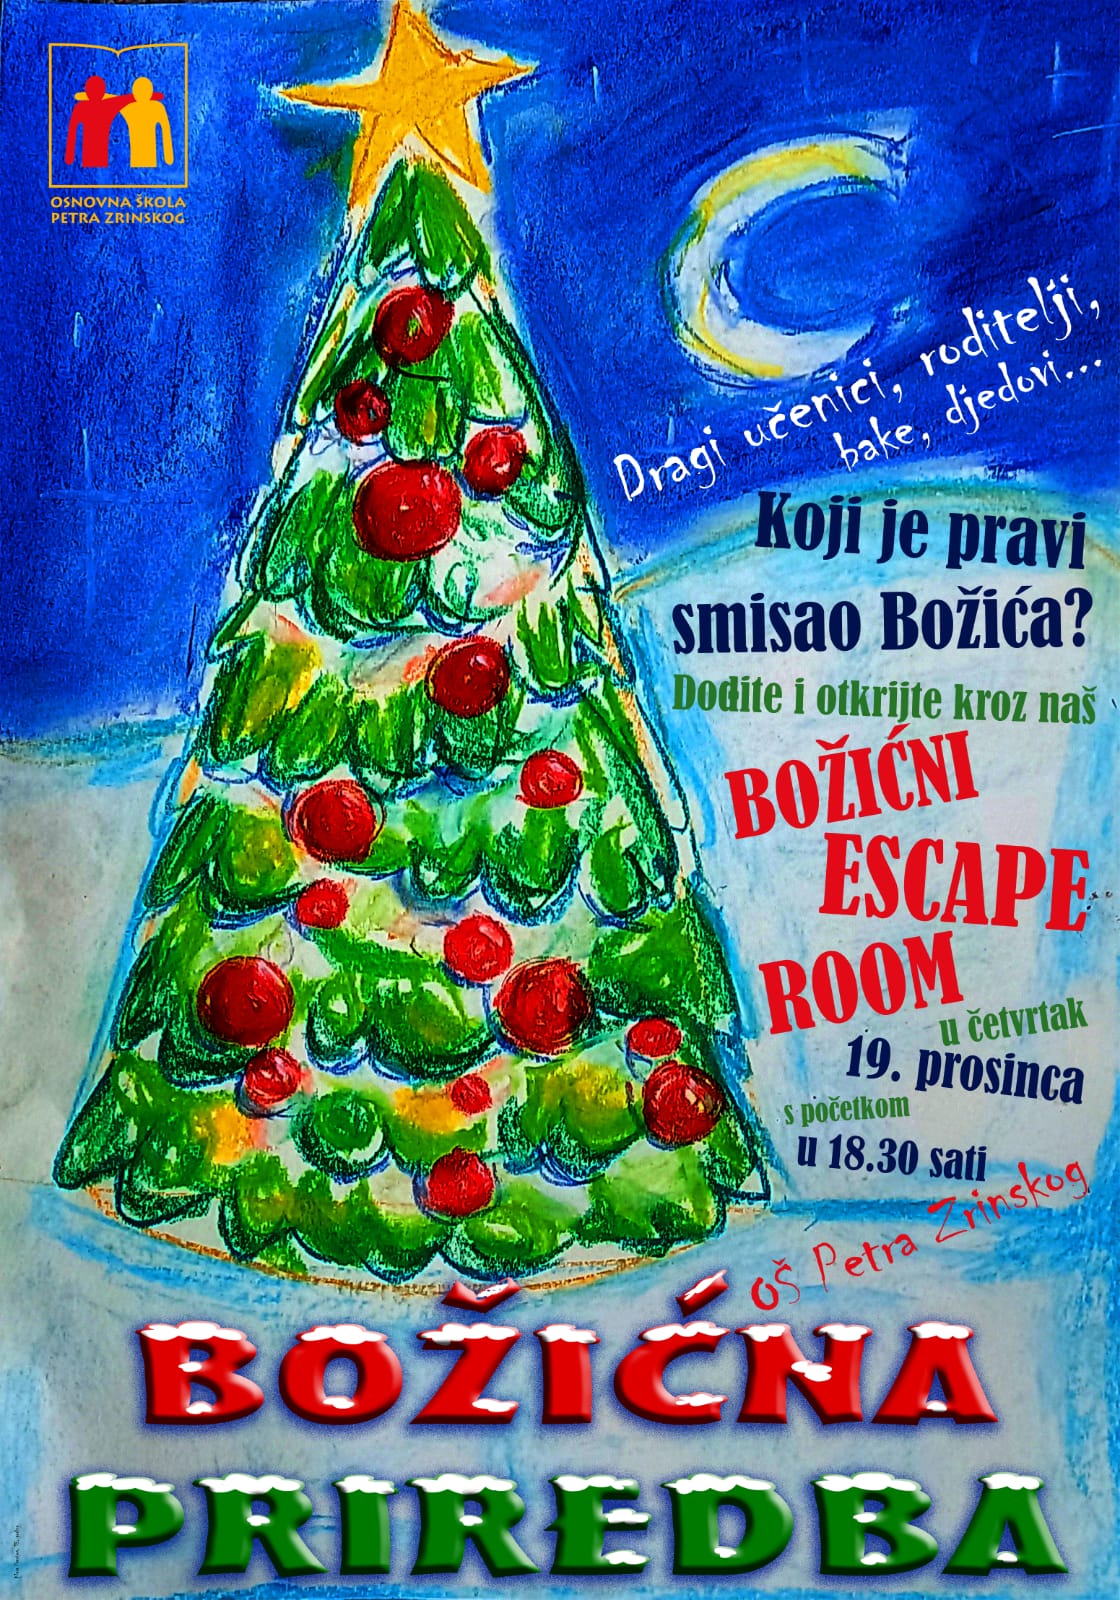 OSNOVNA ŠKOLA
PETRA ZRINSKOG
Dragi učenici, roditelji,
bake, djedovi...
Koji je pravi
smisao Božića?
Dođite i otkrijte kroz naš
BOŽIĆNI
ESCAPE
ROOM
u četvrtak
19. prosinca
s početkom
u 18.30 sati
OŠ Petra Zrinskog
BOŽIĆNA
PRIREDBA